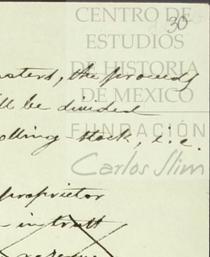 CENTRO DE
30
ESTUDIOS
DE HISTORIA
DE MEXICO
FUNDACIÓN
Carlos Slim
the proceeds
be divided
rolling stock, i.e.
proprietor
in trust